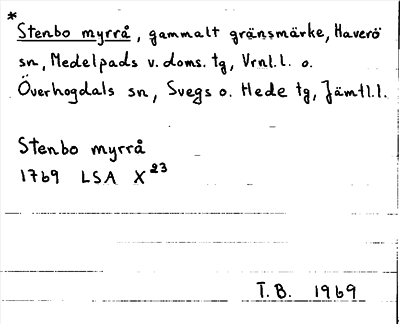 * Stenbo myrrå, gammalt gränsmärke, Haverö
sn, Medelpads v. doms. tg, Vrnl. l. o.
Överhogdals sn, Svegs o. Hede tg, Jämtl. l.
Stenbo myrrå
1769 LSA X²³
T.B. 1969